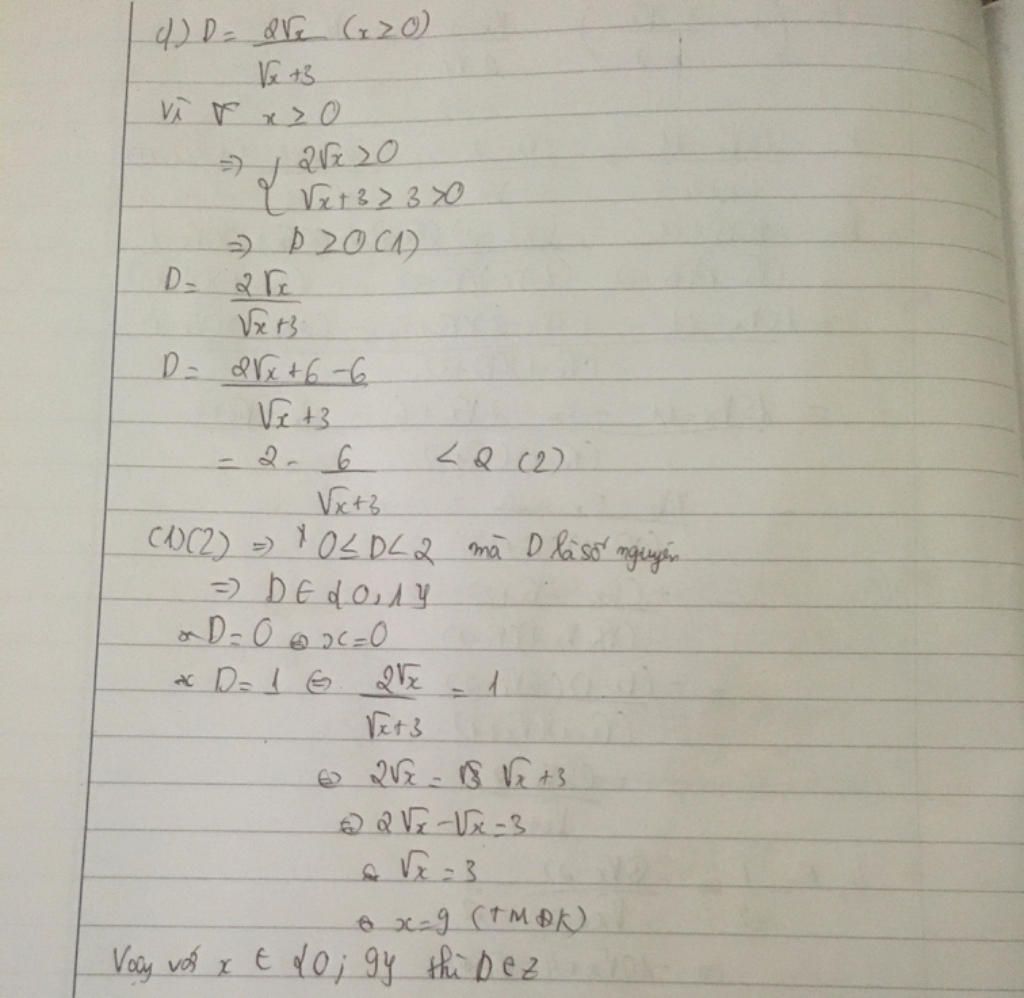 d) D = 2√x / √x + 3 (x ≥ 0)
Vì ∀ x ≥ 0
=> { 2√x ≥ 0
√x + 3 ≥ 3 > 0
=> D ≥ 0 (1)
D = 2√x / √x + 3
D = 2√x + 6 - 6 / √x + 3
= 2 - 6 / √x + 3 < 2 (2)
(1)(2) => 0 ≤ D < 2 mà D là số nguyên
=> D ∈ {0, 1}
* D = 0 ⇔ x = 0
* D = 1 ⇔ 2√x / √x + 3 = 1
⇔ 2√x = √x + 3
⇔ 2√x - √x = 3
⇔ √x = 3
⇔ x = 9 (TMĐK)
Vậy với x ∈ {0; 9} thì D ∈ Z